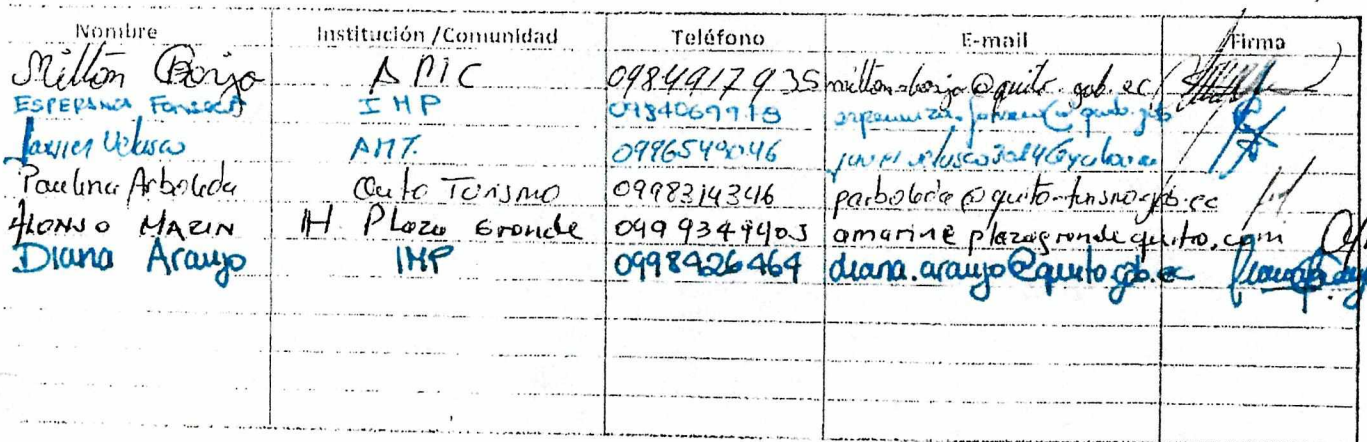 Nombre Institución /Comunidad Teléfono E-mail Firma
Milton Borja AMC 0984917935 milton.borja@quito.gob.ec
ESPERANZA FONSECA IMP
Javier Velasco AMT. 0996549046
Paulina Arboleda Quito Turismo 0998314346 parboleda@quito-turismo.gob.ec
ALONSO MARIN H Plaza Grande 0999349403 amarin@plazagrandequito.com
Diana Araujo IMP 0998426464 diana.araujo@quito.gob.ec